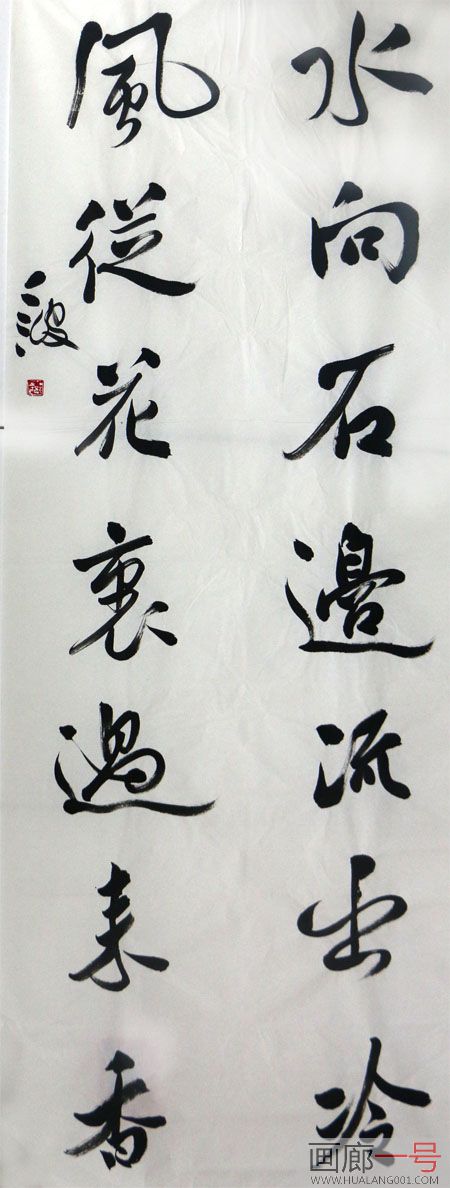 水向石邊流出冷
風從花裏過來香
波
画廊一号
WWW.HUALANG001.COM